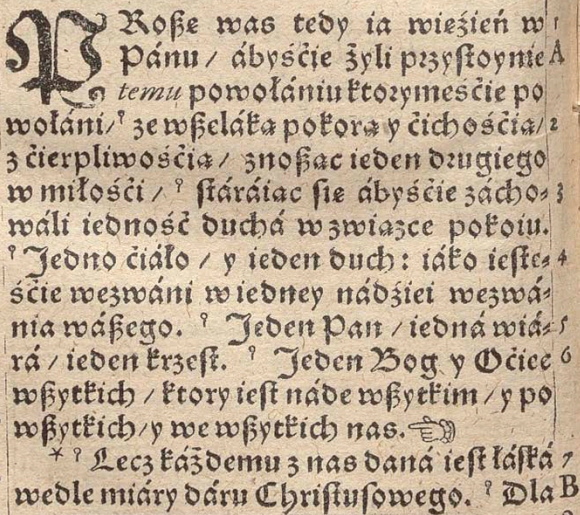 PRoßę was tedy ia więźień w 1
Pánu / ábyśćie żyli przystoynie A
temu powołániu ktorymeśćie po
wołáni / ze wßeláką pokorą y ćichośćią / 2
z ćierpliwośćią / znoßąc ieden drugiego
w miłośći / stáráiąc się ábyśćie zácho- 3
wáli iedność duchá w związce pokoiu.
Jedno ćiáło / y ieden duch : iáko ieste- 4
śćie wezwáni w iedney nádźiei wezwá-
nia wáßego. Jeden Pan / iedná wiá- 5
rá / ieden krzest. Jeden Bog y Oćiec 6
wßytkich / ktory iest náde wßytkim / y po
wßytkich / y we wßytkich nas. ☜
* Lecz káżdemu z nas daná iest łáská 7
wedle miáry dáru Christusowego. Dla B